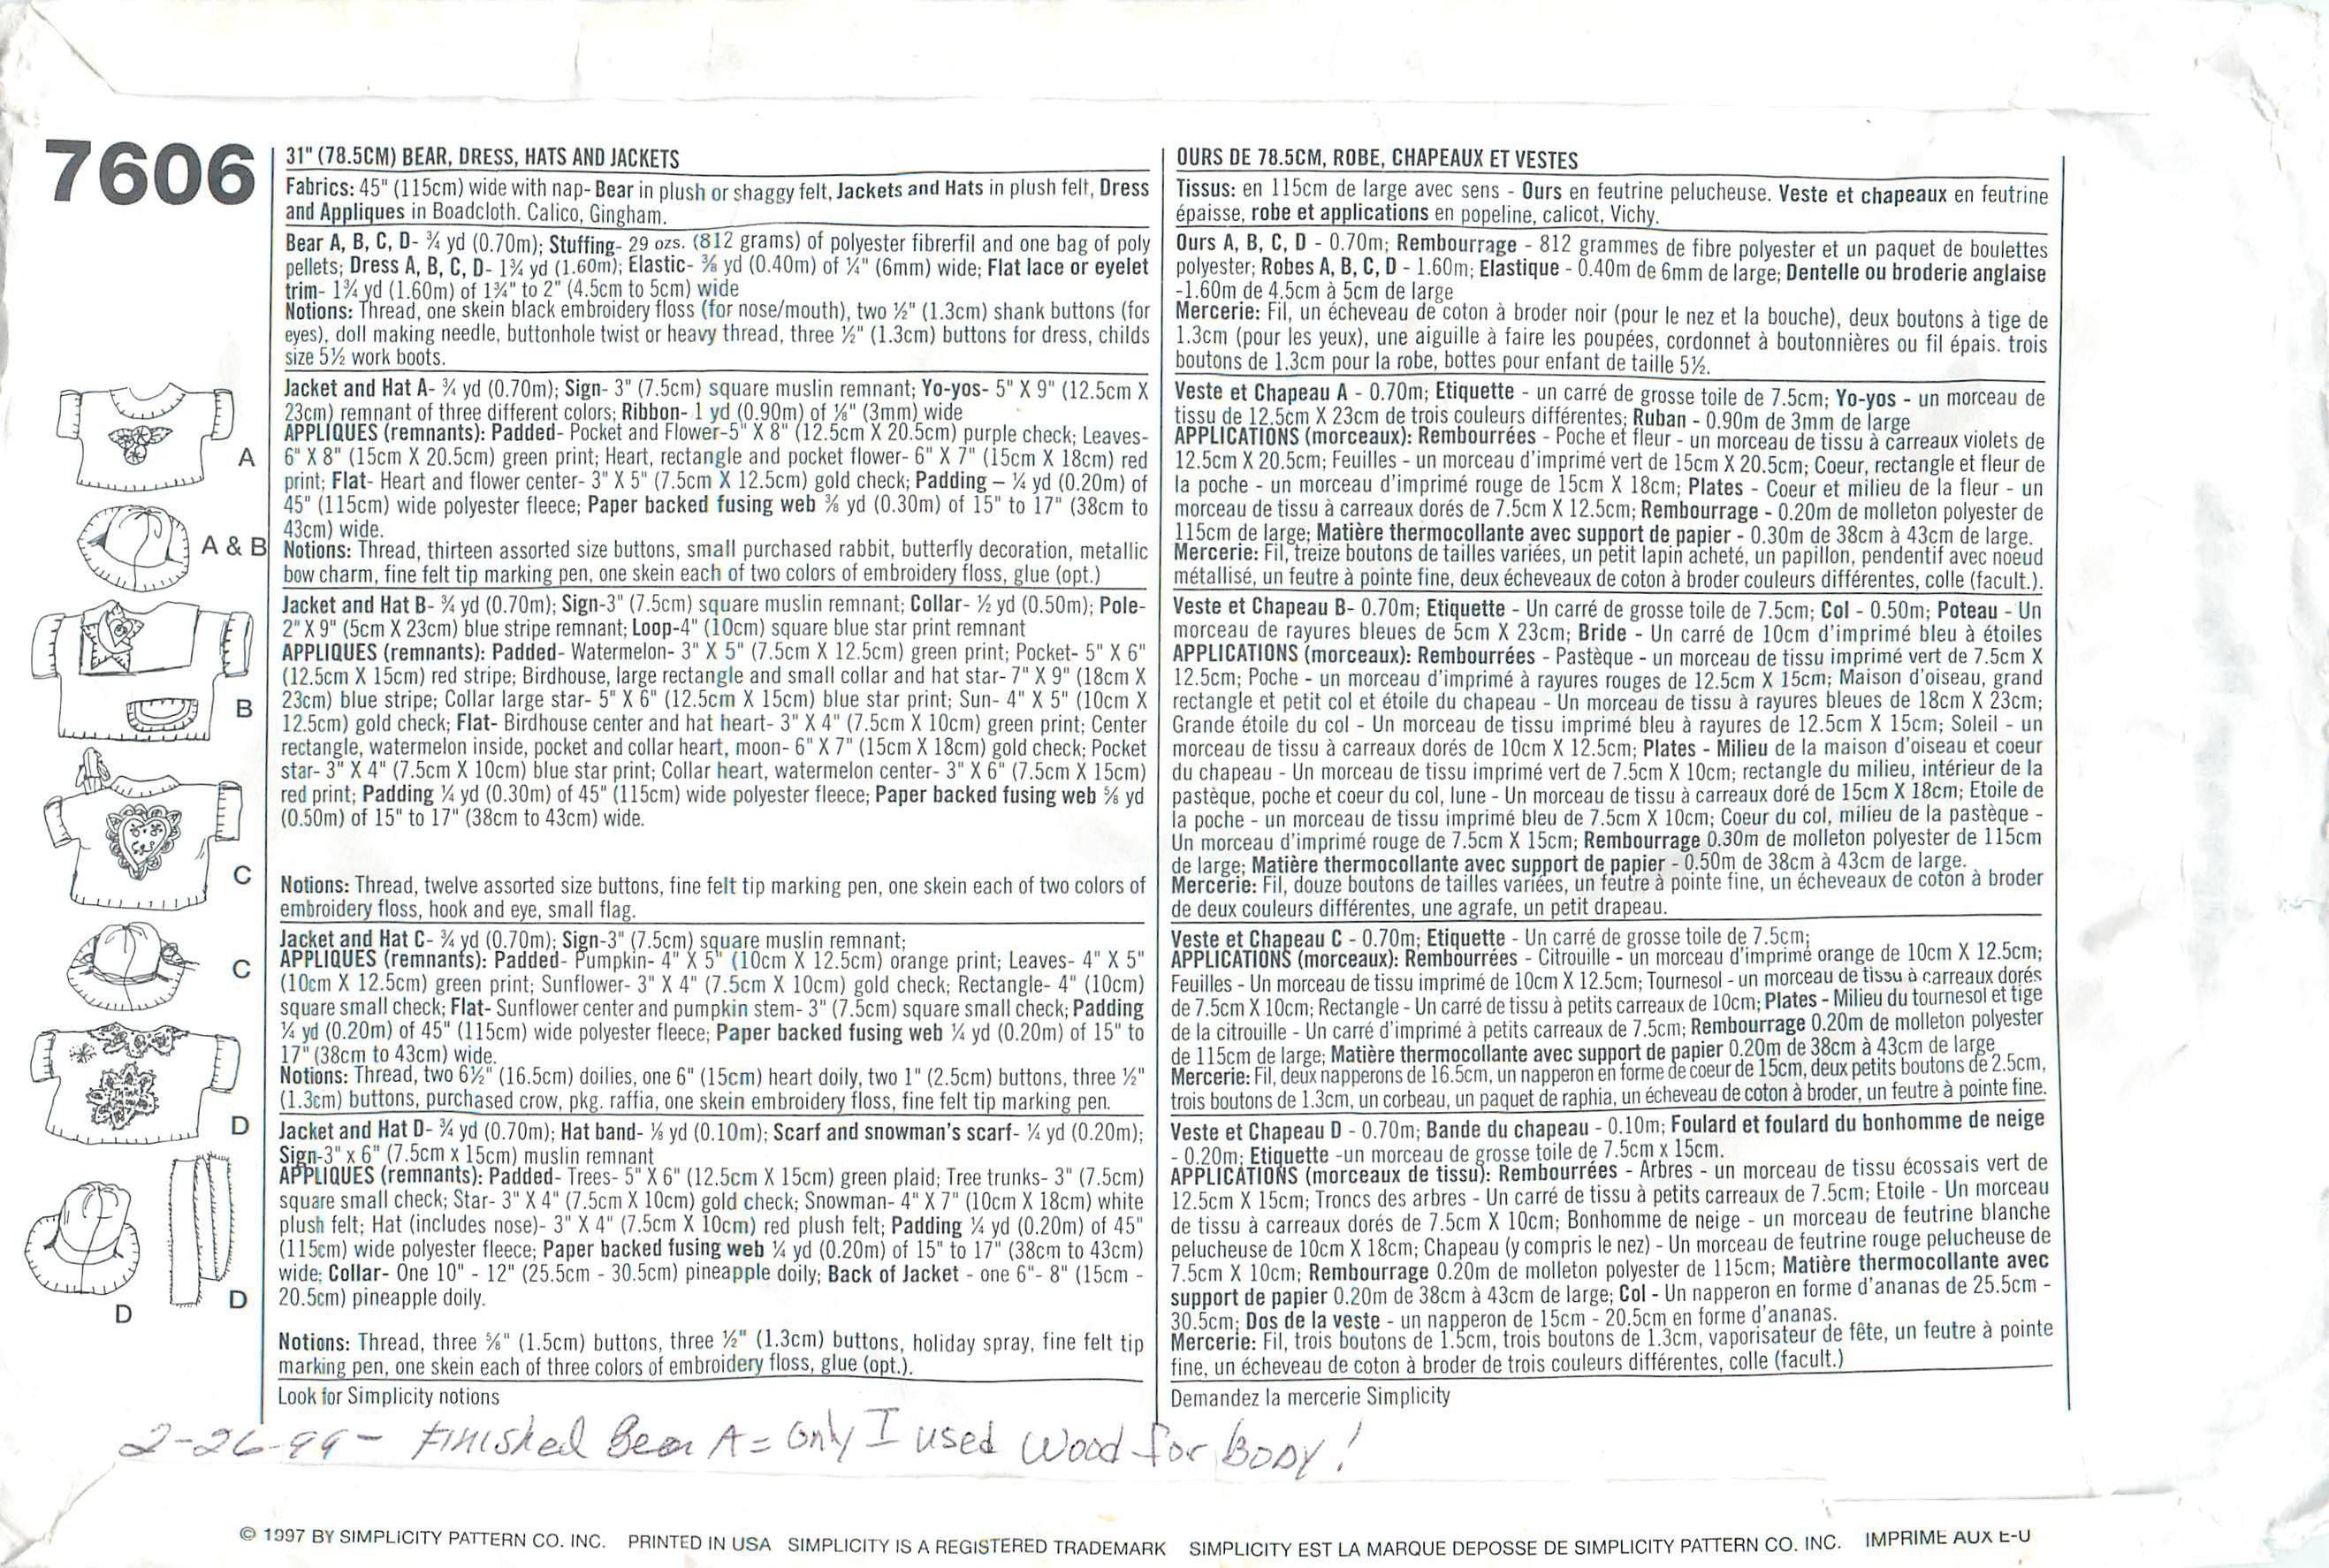 7606
31" (78.5CM) BEAR, DRESS, HATS AND JACKETS
Fabrics: 45" (115cm) wide with nap- Bear in plush or shaggy felt, Jackets and Hats in plush felt, Dress
and Appliques in Boadcloth. Calico, Gingham.
Bear A, B, C, D- ¾ yd (0.70m); Stuffing- 29 ozs. (812 grams) of polyester fibrerfil and one bag of poly
pellets; Dress A, B, C, D- 1¾ yd (1.60m); Elastic- ⅜ yd (0.40m) of ¼" (6mm) wide; Flat lace or eyelet
trim- 1¾ yd (1.60m) of 1¾" to 2" (4.5cm to 5cm) wide
Notions: Thread, one skein black embroidery floss (for nose/mouth), two ½" (1.3cm) shank buttons (for
eyes), doll making needle, buttonhole twist or heavy thread, three ½" (1.3cm) buttons for dress, childs
size 5½ work boots.
Jacket and Hat A- ¾ yd (0.70m); Sign- 3" (7.5cm) square muslin remnant; Yo-yos- 5" X 9" (12.5cm X
23cm) remnant of three different colors; Ribbon- 1 yd (0.90m) of ⅛" (3mm) wide
APPLIQUES (remnants): Padded- Pocket and Flower-5" X 8" (12.5cm X 20.5cm) purple check; Leaves-
6" X 8" (15cm X 20.5cm) green print; Heart, rectangle and pocket flower- 6" X 7" (15cm X 18cm) red
print; Flat- Heart and flower center- 3" X 5" (7.5cm X 12.5cm) gold check; Padding – ¼ yd (0.20m) of
45" (115cm) wide polyester fleece; Paper backed fusing web ⅜ yd (0.30m) of 15" to 17" (38cm to
43cm) wide.
Notions: Thread, thirteen assorted size buttons, small purchased rabbit, butterfly decoration, metallic
bow charm, fine felt tip marking pen, one skein each of two colors of embroidery floss, glue (opt.)
Jacket and Hat B- ¾ yd (0.70m); Sign-3" (7.5cm) square muslin remnant; Collar- ½ yd (0.50m); Pole-
2" X 9" (5cm X 23cm) blue stripe remnant; Loop-4" (10cm) square blue star print remnant
APPLIQUES (remnants): Padded- Watermelon- 3" X 5" (7.5cm X 12.5cm) green print; Pocket- 5" X 6"
(12.5cm X 15cm) red stripe; Birdhouse, large rectangle and small collar and hat star- 7" X 9" (18cm X
23cm) blue stripe; Collar large star- 5" X 6" (12.5cm X 15cm) blue star print; Sun- 4" X 5" (10cm X
12.5cm) gold check; Flat- Birdhouse center and hat heart- 3" X 4" (7.5cm X 10cm) green print; Center
rectangle, watermelon inside, pocket and collar heart, moon- 6" X 7" (15cm X 18cm) gold check; Pocket
star- 3" X 4" (7.5cm X 10cm) blue star print; Collar heart, watermelon center- 3" X 6" (7.5cm X 15cm)
red print; Padding ¼ yd (0.30m) of 45" (115cm) wide polyester fleece; Paper backed fusing web ⅝ yd
(0.50m) of 15" to 17" (38cm to 43cm) wide.
Notions: Thread, twelve assorted size buttons, fine felt tip marking pen, one skein each of two colors of
embroidery floss, hook and eye, small flag.
Jacket and Hat C- ¾ yd (0.70m); Sign-3" (7.5cm) square muslin remnant;
APPLIQUES (remnants): Padded- Pumpkin- 4" X 5" (10cm X 12.5cm) orange print; Leaves- 4" X 5"
(10cm X 12.5cm) green print; Sunflower- 3" X 4" (7.5cm X 10cm) gold check; Rectangle- 4" (10cm)
square small check; Flat- Sunflower center and pumpkin stem- 3" (7.5cm) square small check; Padding
¼ yd (0.20m) of 45" (115cm) wide polyester fleece; Paper backed fusing web ¼ yd (0.20m) of 15" to
17" (38cm to 43cm) wide.
Notions: Thread, two 6½" (16.5cm) doilies, one 6" (15cm) heart doily, two 1" (2.5cm) buttons, three ½"
(1.3cm) buttons, purchased crow, pkg. raffia, one skein embroidery floss, fine felt tip marking pen.
Jacket and Hat D- ¾ yd (0.70m); Hat band- ⅛ yd (0.10m); Scarf and snowman's scarf- ¼ yd (0.20m);
Sign-3" x 6" (7.5cm x 15cm) muslin remnant
APPLIQUES (remnants): Padded- Trees- 5" X 6" (12.5cm X 15cm) green plaid; Tree trunks- 3" (7.5cm)
square small check; Star- 3" X 4" (7.5cm X 10cm) gold check; Snowman- 4" X 7" (10cm X 18cm) white
plush felt; Hat (includes nose)- 3" X 4" (7.5cm X 10cm) red plush felt; Padding ¼ yd (0.20m) of 45"
(115cm) wide polyester fleece; Paper backed fusing web ¼ yd (0.20m) of 15" to 17" (38cm to 43cm)
wide; Collar- One 10" - 12" (25.5cm - 30.5cm) pineapple doily; Back of Jacket - one 6"- 8" (15cm -
20.5cm) pineapple doily.
Notions: Thread, three ⅝" (1.5cm) buttons, three ½" (1.3cm) buttons, holiday spray, fine felt tip
marking pen, one skein each of three colors of embroidery floss, glue (opt.).
Look for Simplicity notions
OURS DE 78.5CM, ROBE, CHAPEAUX ET VESTES
Tissus: en 115cm de large avec sens - Ours en feutrine pelucheuse. Veste et chapeaux en feutrine
épaisse, robe et applications en popeline, calicot, Vichy.
Ours A, B, C, D - 0.70m; Rembourrage - 812 grammes de fibre polyester et un paquet de boulettes
polyester; Robes A, B, C, D - 1.60m; Elastique - 0.40m de 6mm de large; Dentelle ou broderie anglaise
-1.60m de 4.5cm à 5cm de large
Mercerie: Fil, un écheveau de coton à broder noir (pour le nez et la bouche), deux boutons à tige de
1.3cm (pour les yeux), une aiguille à faire les poupées, cordonnet à boutonnières ou fil épais. trois
boutons de 1.3cm pour la robe, bottes pour enfant de taille 5½.
Veste et Chapeau A - 0.70m; Etiquette - un carré de grosse toile de 7.5cm; Yo-yos - un morceau de
tissu de 12.5cm X 23cm de trois couleurs différentes; Ruban - 0.90m de 3mm de large
APPLICATIONS (morceaux): Rembourrées - Poche et fleur - un morceau de tissu à carreaux violets de
12.5cm X 20.5cm; Feuilles - un morceau d'imprimé vert de 15cm X 20.5cm; Coeur, rectangle et fleur de
la poche - un morceau d'imprimé rouge de 15cm X 18cm; Plates - Coeur et milieu de la fleur - un
morceau de tissu à carreaux dorés de 7.5cm X 12.5cm; Rembourrage - 0.20m de molleton polyester de
115cm de large; Matière thermocollante avec support de papier - 0.30m de 38cm à 43cm de large.
Mercerie: Fil, treize boutons de tailles variées, un petit lapin acheté, un papillon, pendentif avec noeud
métallisé, un feutre à pointe fine, deux écheveaux de coton à broder couleurs différentes, colle (facult.).
Veste et Chapeau B- 0.70m; Etiquette - Un carré de grosse toile de 7.5cm; Col - 0.50m; Poteau - Un
morceau de rayures bleues de 5cm X 23cm; Bride - Un carré de 10cm d'imprimé bleu à étoiles
APPLICATIONS (morceaux): Rembourrées - Pastèque - un morceau de tissu imprimé vert de 7.5cm X
12.5cm; Poche - un morceau d'imprimé à rayures rouges de 12.5cm X 15cm; Maison d'oiseau, grand
rectangle et petit col et étoile du chapeau - Un morceau de tissu à rayures bleues de 18cm X 23cm;
Grande étoile du col - Un morceau de tissu imprimé bleu à rayures de 12.5cm X 15cm; Soleil - un
morceau de tissu à carreaux dorés de 10cm X 12.5cm; Plates - Milieu de la maison d'oiseau et coeur
du chapeau - Un morceau de tissu imprimé vert de 7.5cm X 10cm; rectangle du milieu, intérieur de la
pastèque, poche et coeur du col, lune - Un morceau de tissu à carreaux doré de 15cm X 18cm; Etoile de
la poche - un morceau de tissu imprimé bleu de 7.5cm X 10cm; Coeur du col, milieu de la pastèque -
Un morceau d'imprimé rouge de 7.5cm X 15cm; Rembourrage 0.30m de molleton polyester de 115cm
de large; Matière thermocollante avec support de papier - 0.50m de 38cm à 43cm de large.
Mercerie: Fil, douze boutons de tailles variées, un feutre à pointe fine, un écheveaux de coton à broder
de deux couleurs différentes, une agrafe, un petit drapeau.
Veste et Chapeau C - 0.70m; Etiquette - Un carré de grosse toile de 7.5cm;
APPLICATIONS (morceaux): Rembourrées - Citrouille - un morceau d'imprimé orange de 10cm X 12.5cm;
Feuilles - Un morceau de tissu imprimé de 10cm X 12.5cm; Tournesol - un morceau de tissu à carreaux dorés
de 7.5cm X 10cm; Rectangle - Un carré de tissu à petits carreaux de 10cm; Plates - Milieu du tournesol et tige
de la citrouille - Un carré d'imprimé à petits carreaux de 7.5cm; Rembourrage 0.20m de molleton polyester
de 115cm de large; Matière thermocollante avec support de papier 0.20m de 38cm à 43cm de large
Mercerie: Fil, deux napperons de 16.5cm, un napperon en forme de coeur de 15cm, deux petits boutons de 2.5cm,
trois boutons de 1.3cm, un corbeau, un paquet de raphia, un écheveau de coton à broder, un feutre à pointe fine.
Veste et Chapeau D - 0.70m; Bande du chapeau - 0.10m; Foulard et foulard du bonhomme de neige
- 0.20m; Etiquette -un morceau de grosse toile de 7.5cm x 15cm.
APPLICATIONS (morceaux de tissu): Rembourrées - Arbres - un morceau de tissu écossais vert de
12.5cm X 15cm; Troncs des arbres - Un carré de tissu à petits carreaux de 7.5cm; Etoile - Un morceau
de tissu à carreaux dorés de 7.5cm X 10cm; Bonhomme de neige - un morceau de feutrine blanche
pelucheuse de 10cm X 18cm; Chapeau (y compris le nez) - Un morceau de feutrine rouge pelucheuse de
7.5cm X 10cm; Rembourrage 0.20m de molleton polyester de 115cm; Matière thermocollante avec
support de papier 0.20m de 38cm à 43cm de large; Col - Un napperon en forme d'ananas de 25.5cm -
30.5cm; Dos de la veste - un napperon de 15cm - 20.5cm en forme d'ananas.
Mercerie: Fil, trois boutons de 1.5cm, trois boutons de 1.3cm, vaporisateur de fête, un feutre à pointe
fine, un écheveau de coton à broder de trois couleurs différentes, colle (facult.)
Demandez la mercerie Simplicity
A
A & B
B
C
C
D
D
D
2-26-99 - Finished Bear A = only I used Wood for BODY!
© 1997 BY SIMPLICITY PATTERN CO. INC. PRINTED IN USA SIMPLICITY IS A REGISTERED TRADEMARK SIMPLICITY EST LA MARQUE DEPOSSE DE SIMPLICITY PATTERN CO. INC. IMPRIME AUX E-U